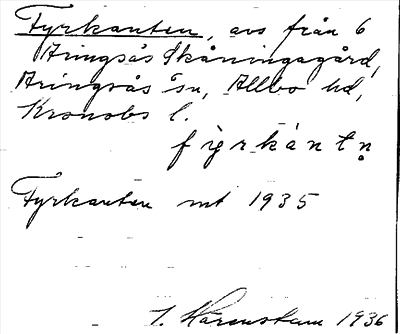 Fyrkanten, avs från 6
Aringsås Skåningagård,
Aringsås sn, Allbo hd,
Kronobs l.
fyrkántn
Fyrkanten mt 1935
I. Härenstam 1936